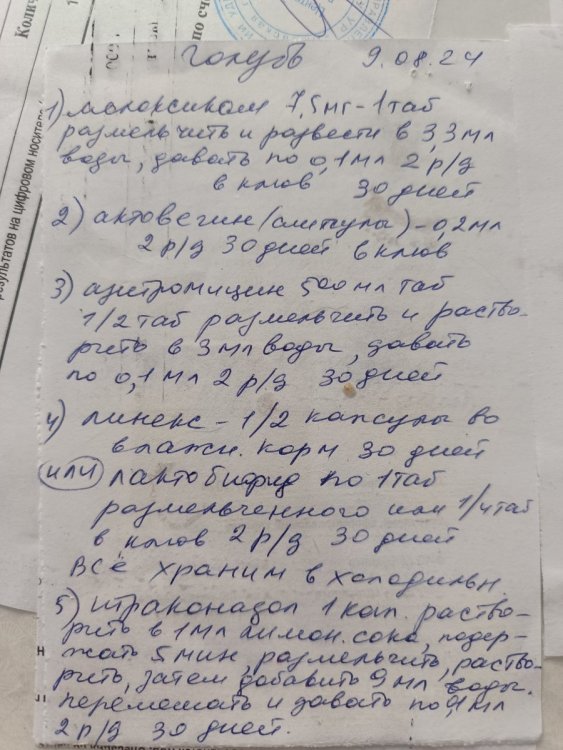 Колич
по сч
результатов на цифровом носителе
Голубь 9.08.24
1) мелоксикам 7,5 мг - 1 таб
размельчить и развести в 3,3 мл
воды, давать по 0,1 мл 2 р/д
в клюв 30 дней
2) актовегин (ампулы) - 0,2 мл
2 р/д 30 дней в клюв
3) азитромицин 500 мл таб
1/2 таб размельчить и раство-
рить в 3 мл воды, давать
по 0,1 мл 2 р/д 30 дней
4) линекс - 1/2 капсулы во
влажн. корм 30 дней
или лактобифид по 1 таб
размельченного или 1/4 таб
в клюв 2 р/д 30 дней
Всё храним в холодильн
5) итраконазол 1 кап. раство-
рить в 1 мл лимон. сока, подер-
жать 5 мин, размельчить, раство-
рить, затем добавить 9 мл воды.
перемешать и давать по 0,1 мл
2 р/д 30 дней.